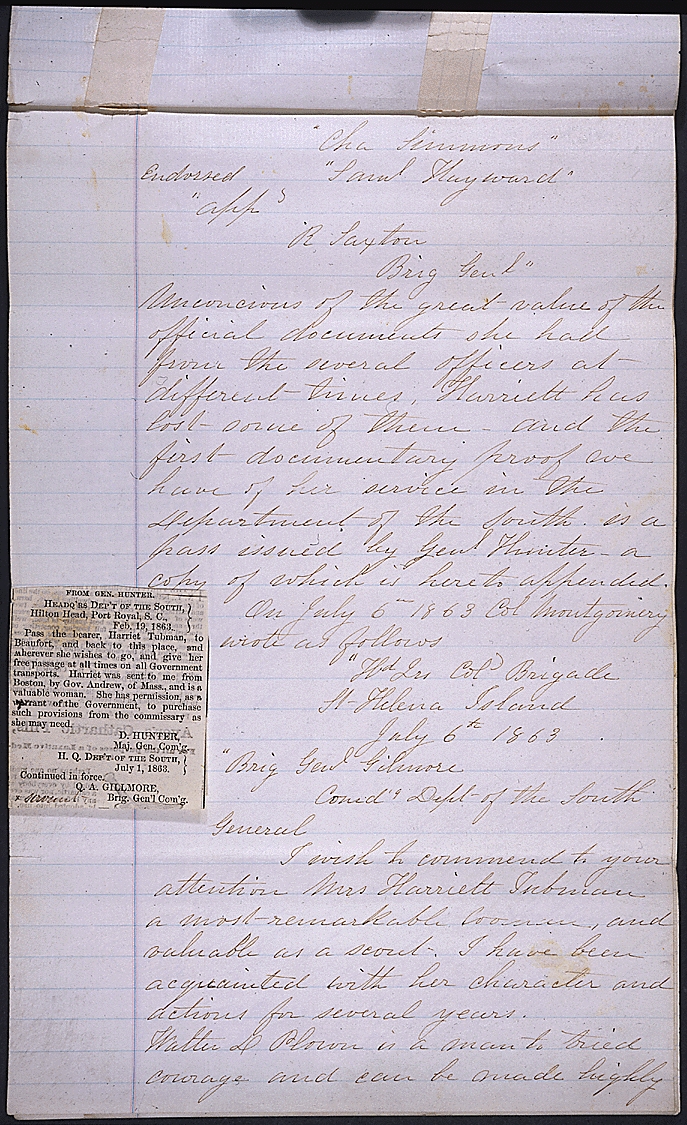 "Cha Simmons"
Endorsed "Saml Hayward"
"app"
R. Saxton
Brig Genl"
Unconcious of the great value of the
official documents she had
from the several officers at
different times, Harriett has
lost some of them - and the
first documentary proof we
have of her service in the
Department of the South. is a
pass issued by Genl Hunter - a
copy of which is hereto appended.
FROM GEN. HUNTER.
HEADQ'RS DEP'T OF THE SOUTH,
Hilton Head, Port Royal, S. C.,
Feb. 19, 1863.
Pass the bearer, Harriet Tubman, to
Beaufort, and back to this place, and
wherever she wishes to go, and give her
free passage at all times on all Government
transports. Harriet was sent to me from
Boston, by Gov. Andrew, of Mass., and is a
valuable woman. She has permission, as a
servant of the Government, to purchase
such provisions from the commissary as
she may need.
D. HUNTER,
Maj. Gen. Com'g.
H. Q. DEP'T OF THE SOUTH,
July 1, 1863.
Continued in force.
Q. A. GILLMORE,
Brig. Gen'l Com'g.
x servant
On July 6th 1863 Col Montgomery
wrote as follows
"Hd Qrs Cold Brigade
St Helena Island
July 6th 1863
"Brig Genl Gilmore
Comd'g Dept of the South
General
I wish to commend to your
attention Mrs Harriett Tubman
a most remarkable woman, and
valuable as a scout. I have been
acquainted with her character and
actions for several years.
Walter D. Plown is a man to tried
courage and can be made highly